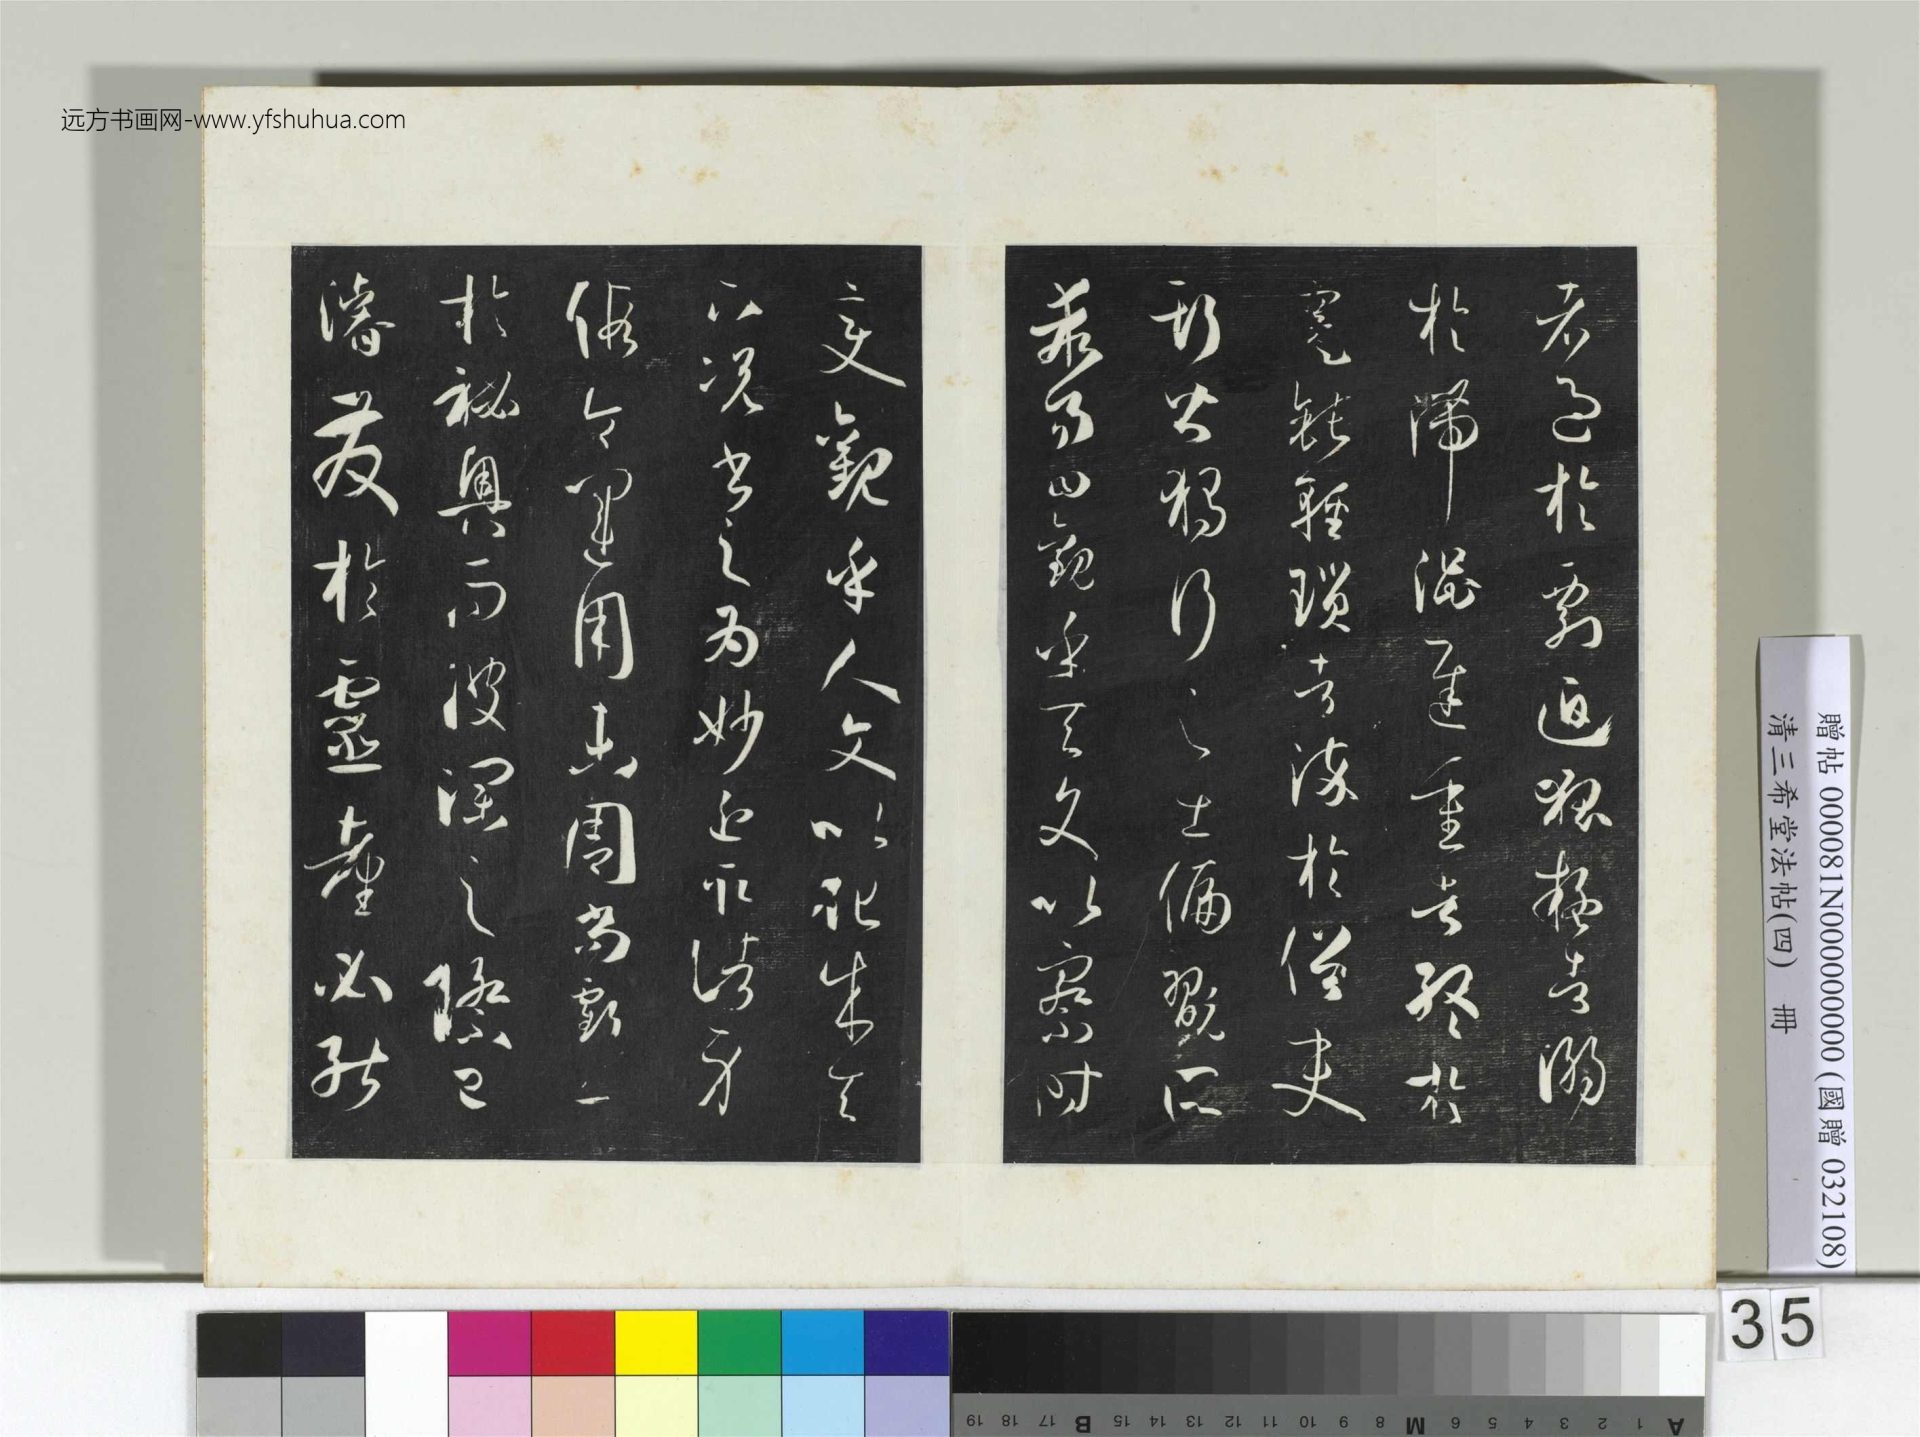 远方书画网-www.yfshuhua.com
者過於剽迫狐疑者溺
於滯澀遲重者終於
蹇鈍輕瑣者染於俗吏
斯皆獨行之士偏翫所
乖易曰觀乎天文以察時
變觀乎人文以化成天
下況書之為妙近取諸身
假令運用未周尚虧工
於祕奧而波瀾之際已
濬發於靈臺必能
贈帖 000081N000000000 (國贈 032108)
清三希堂法帖(四) 冊
35
A 1 2 3 4 5 6 M 8 9 10 11 12 13 14 15 B 17 18 19